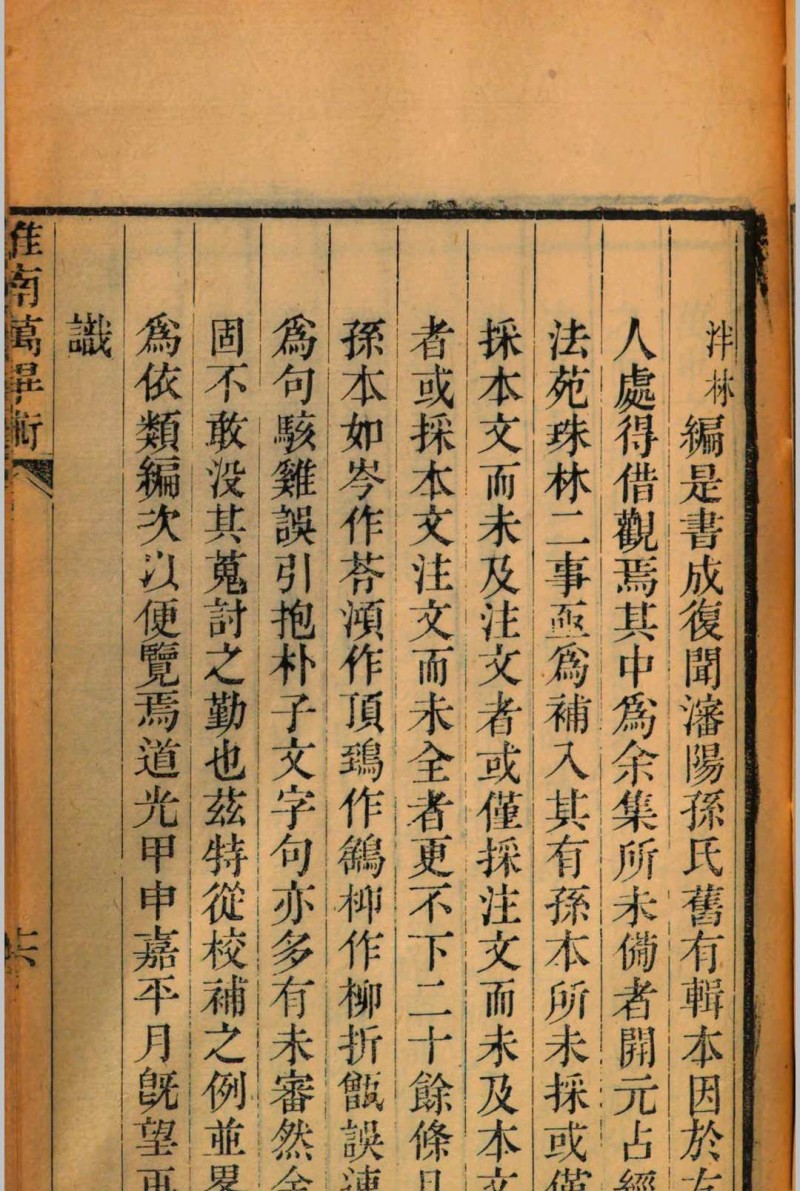 泮林編是書成復聞瀋陽孫氏舊有輯本因於友
人處得借觀焉其中為余集所未備者開元占經
法苑珠林二事亟為補入其有孫本所未採或僅
採本文而未及注文者或僅採注文而未及本文
者或採本文注文而未全者更不下二十餘條且
孫本如岑作芩澒作頂鵄作鵅枊作柳折甑誤連
為句駭雞誤引抱朴子文字句亦多有未審然余
固不敢没其蒐討之勤也茲特從校補之例並畧
為依類編次以便覽焉道光甲申嘉平月既望再
識
淮南萬畢術